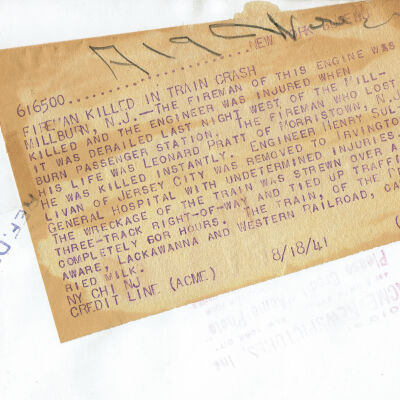 616500
NEW
FIREMAN KILLED IN TRAIN CRASH
MILLBURN, N.J.—THE FIREMAN OF THIS ENGINE WAS
KILLED AND THE ENGINEER WAS INJURED WHEN
IT WAS DERAILED LAST NIGHT WEST OF THE MILL-
BURN PASSENGER STATION. THE FIREMAN WHO LOST
HIS LIFE WAS LEONARD PRATT OF MORRISTOWN, N.J.
HE WAS KILLED INSTANTLY. ENGINEER HENRY SUL-
LIVAN OF JERSEY CITY WAS REMOVED TO IRVINGTON
GENERAL HOSPITAL WITH UNDETERMINED INJURIES.
THE WRECKAGE OF THE TRAIN WAS STREWN OVER A
THREE-TRACK RIGHT-OF-WAY AND TIED UP TRAFFIC
COMPLETELY 6OR HOURS. THE TRAIN, OF THE
AWARE, LACKAWANNA AND WESTERN RAILROAD, CAR
RIED MILK.
NY CHI NJ
CREDIT LINE (ACME)
8/18/41
ACME NEWSPICTURES, Inc